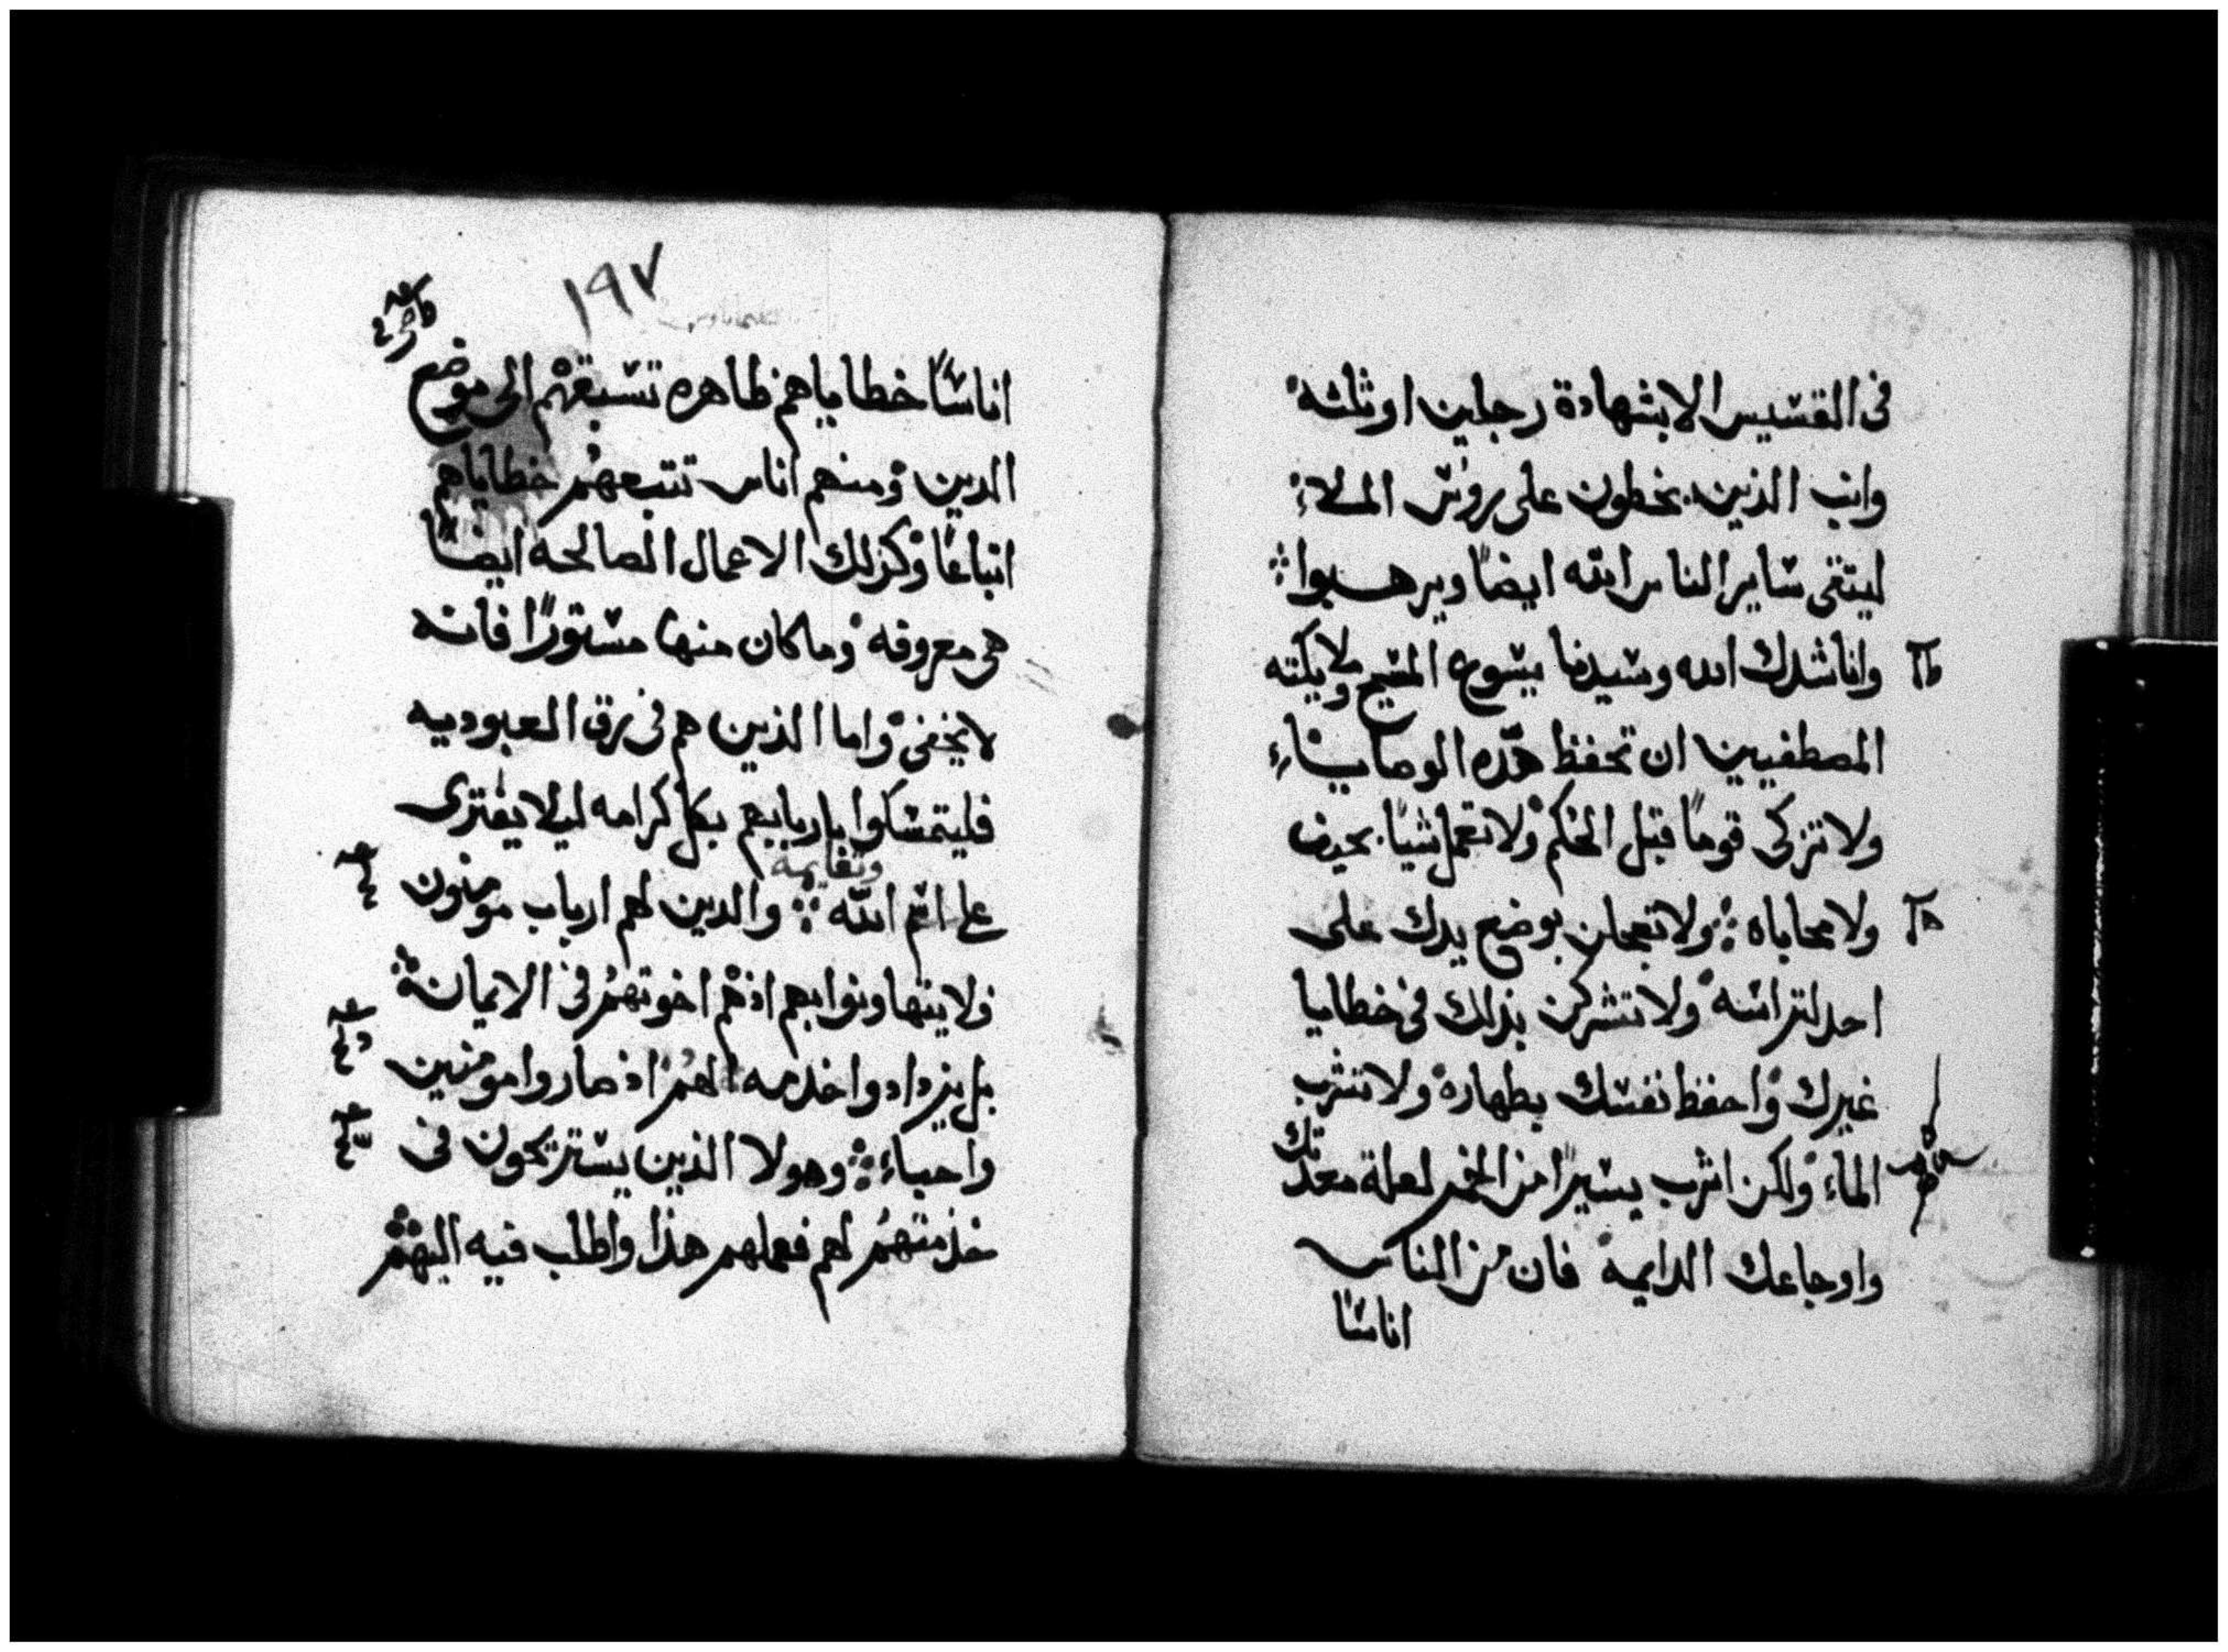 في القسيس الا بشهادة رجلين او ثلثه
وانب الذين يخطون على روس الملاء
ليتقى ساير الناس الله ايضًا ويرهبوا
وانا شدك الله وسيدنا يسوع المسيح وملايكته
المصطفيين ان تحفظ هذه الوصايا
ولا تزكى قومًا قبل الحكم ولا تعمل شيًا بحيف
ولا محاباه ولا تعجلن بوضع يدك على
احد لتراسه ولا تشركن بذلك في خطايا
غيرك واحفظ نفسك بطهاره ولا تشرب
الماء ولكن اشرب يسيرًا من الخمر لعلة معدتك
واوجاعك الدايمه فان من الناس
اناسًا
١٩٧
اناسًا خطاياهم ظاهره تسبقهم الى موضع
الدين ومنهم اناس تتبعهم خطاياهم
اتباعًا وكذلك الاعمال الصالحه ايضًا
هي معروفه وما كان منها مستورًا فانه
لا يخفى واما الذين هم في رق العبوديه
فليتمسكوا باربابهم بكل كرامه ليلا يفترى
على اسم الله والدين لهم ارباب مومنون
فلا يتهاونوا بهم اذ هم اخوتهم في الايمان
بل يزدادوا خدمه لهم اذ صاروا مومنين
واحباء وهولا الذين يستريحون في
خدمتهم لهم فعلهم هذا واطلب فيه اليهم